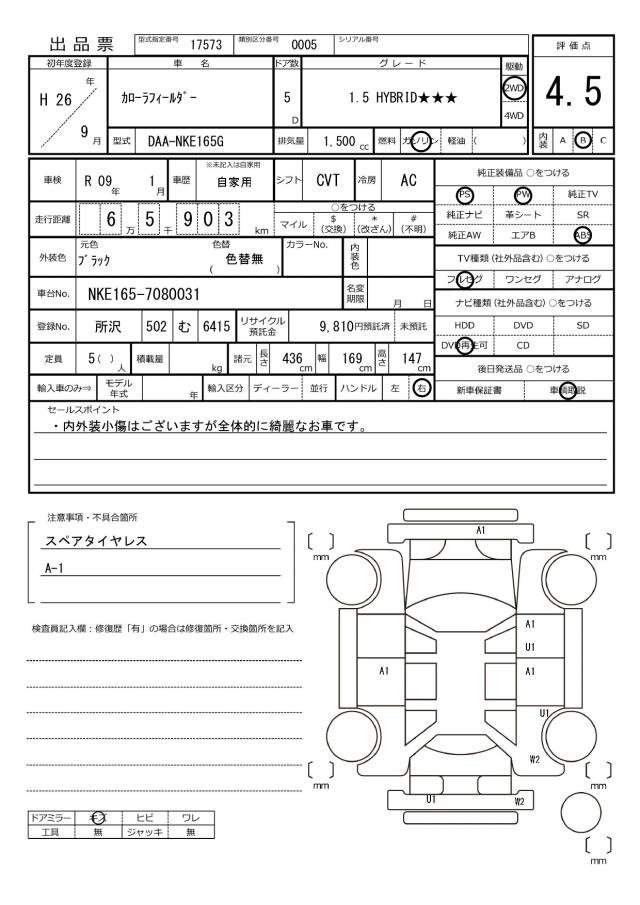 出品票 型式指定番号 17573 類別区分番号 0005 シリアル番号
評価点
4.5
内装 A B C
初年度登録 車名 ドア数 グレード 駆動
H 26 年 9 月
カローラフィールダー
5 D
1.5 HYBRID★★★
2WD
4WD
型式 DAA-NKE165G 排気量 1.500 cc 燃料 ガソリン 軽油 ( )
車検 R 09 年 1 月 車歴 ※未記入は自家用 自家用 シフト CVT 冷房 AC
走行距離 6 5 9 0 3 万 千 km
○をつける
マイル $(交換) *(改ざん) #(不明)
外装色 元色 ブラック 色替 ( 色替無 ) カラーNo. 内装色
車台No. NKE165-7080031 名変期限 月 日
登録No. 所沢 502 む 6415 リサイクル預託金 9,810円預託済 未預託
定員 5( ) 人 積載量 kg 諸元 長さ 436 cm 幅 169 cm 高さ 147 cm
輸入車のみ⇒ モデル年式 年 輸入区分 ディーラー 並行 ハンドル 左 右
純正装備品 ○をつける
PS PW 純正TV
純正ナビ 革シート SR
純正AW エアB ABS
TV種類(社外品含む)○をつける
フルセグ ワンセグ アナログ
ナビ種類(社外品含む)○をつける
HDD DVD SD
DVD再生可 CD
後日発送品 ○をつける
新車保証書 車輌取説
セールスポイント
・内外装小傷はございますが全体的に綺麗なお車です。
注意事項・不具合箇所
スペアタイヤレス
A-1
検査員記入欄：修復歴「有」の場合は修復箇所・交換箇所を記入
ドアミラー キズ ヒビ ワレ
工具 無 ジャッキ 無
A1
[ ] mm
[ ] mm
A1
U1
A1
A1
U1
W2
[ ] mm
[ ] mm
U1
W2
[ ] mm